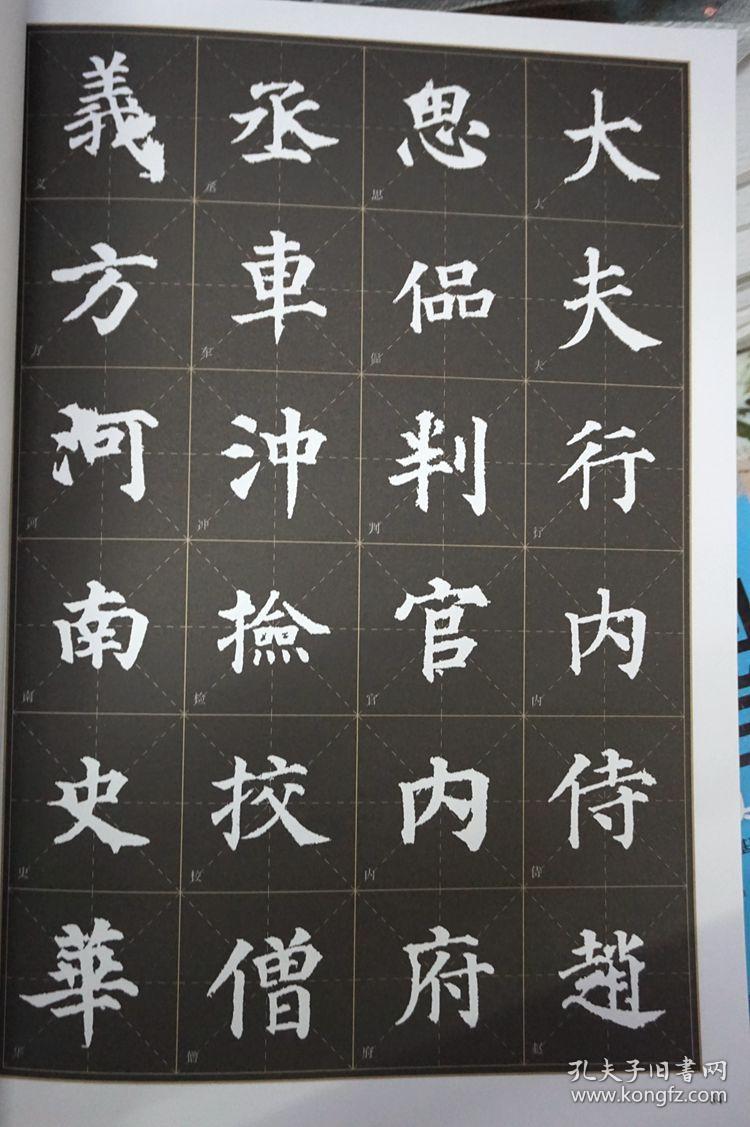 大夫行内侍趙
思偘判官内府
丞車沖撿挍僧
義方河南史華
大夫行内侍赵
思偘判官内府
丞车冲检校僧
义方河南史华
孔夫子旧書网
www.kongfz.com